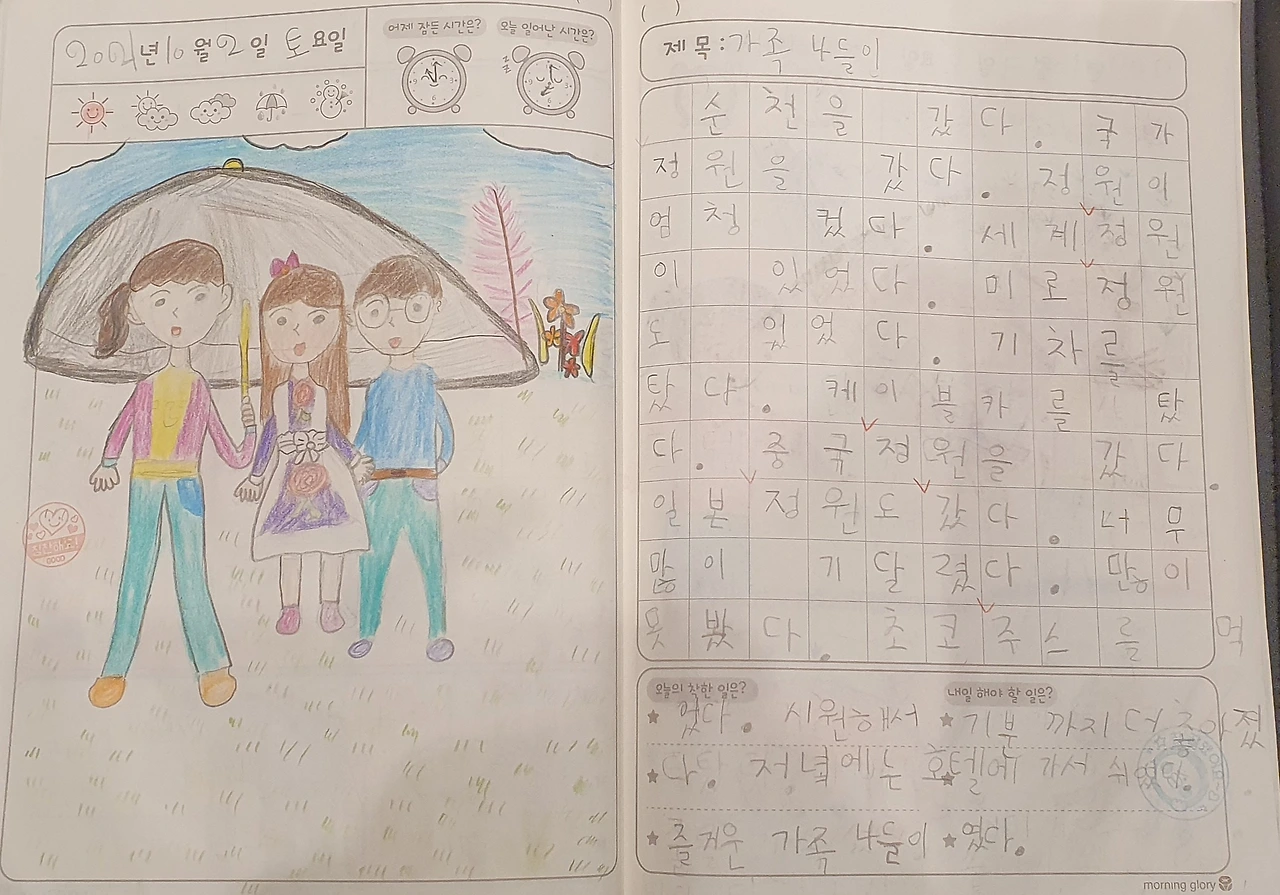 2021년 10월 2일 토요일
어제 잠든 시간은?
오늘 일어난 시간은?
제 목 : 가족 나들이
순천을 갔다. 국가
정원을 갔다. 정원이
엄청 컸다. 세계정원
이 있었다. 미로정원
도 있었다. 기차를
탔다. 케이블카를 탔
다. 중국정원을 갔다.
일본정원도 갔다. 너무
많이 기달렸다. 많이
못 봤다. 초코주스를 먹
오늘의 착한 일은?
내일 해야 할 일은?
었다. 시원해서 기분까지 더 좋아졌
다. 저녁에는 호텔에 가서 쉬었다.
즐거운 가족 나들이였다.
morning glory